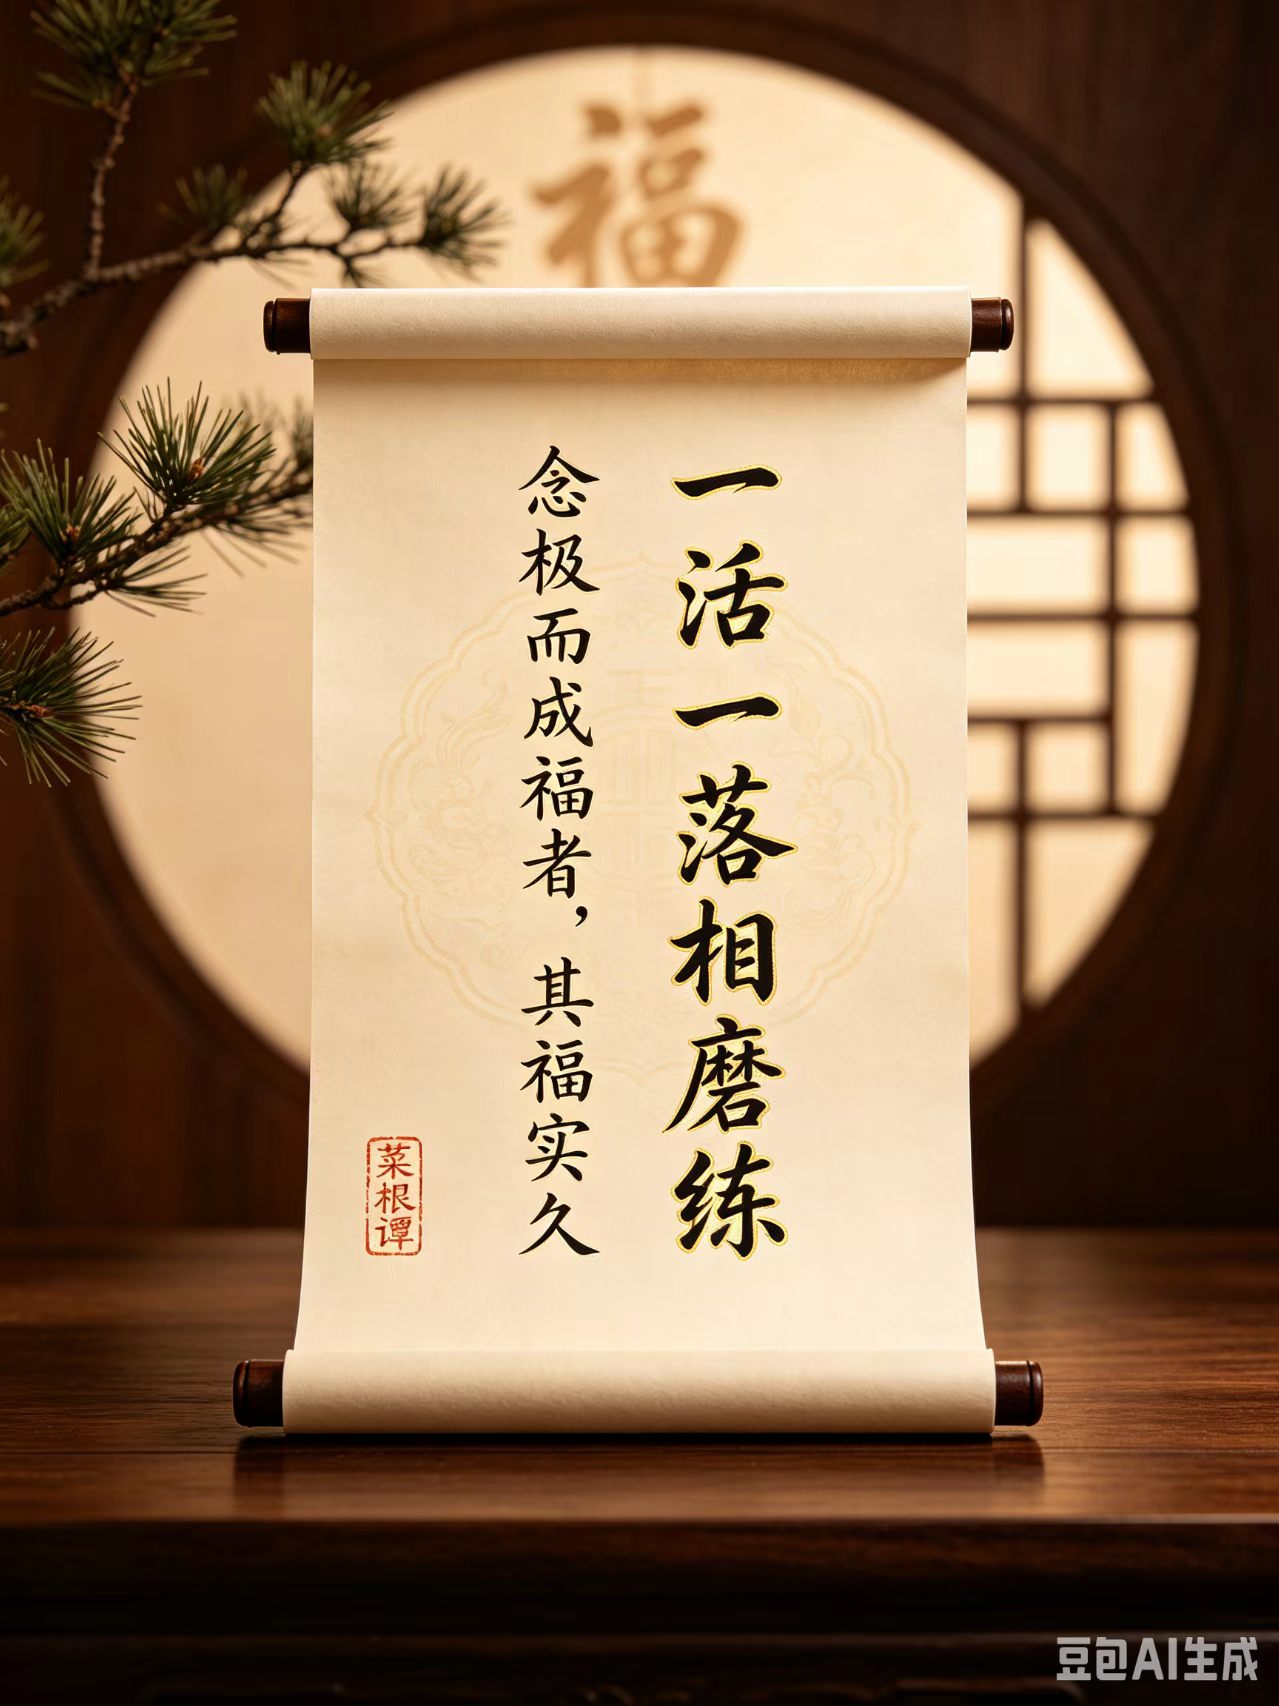 福
一活一落相磨练
念极而成福者，其福实久
菜根谭
豆包AI生成